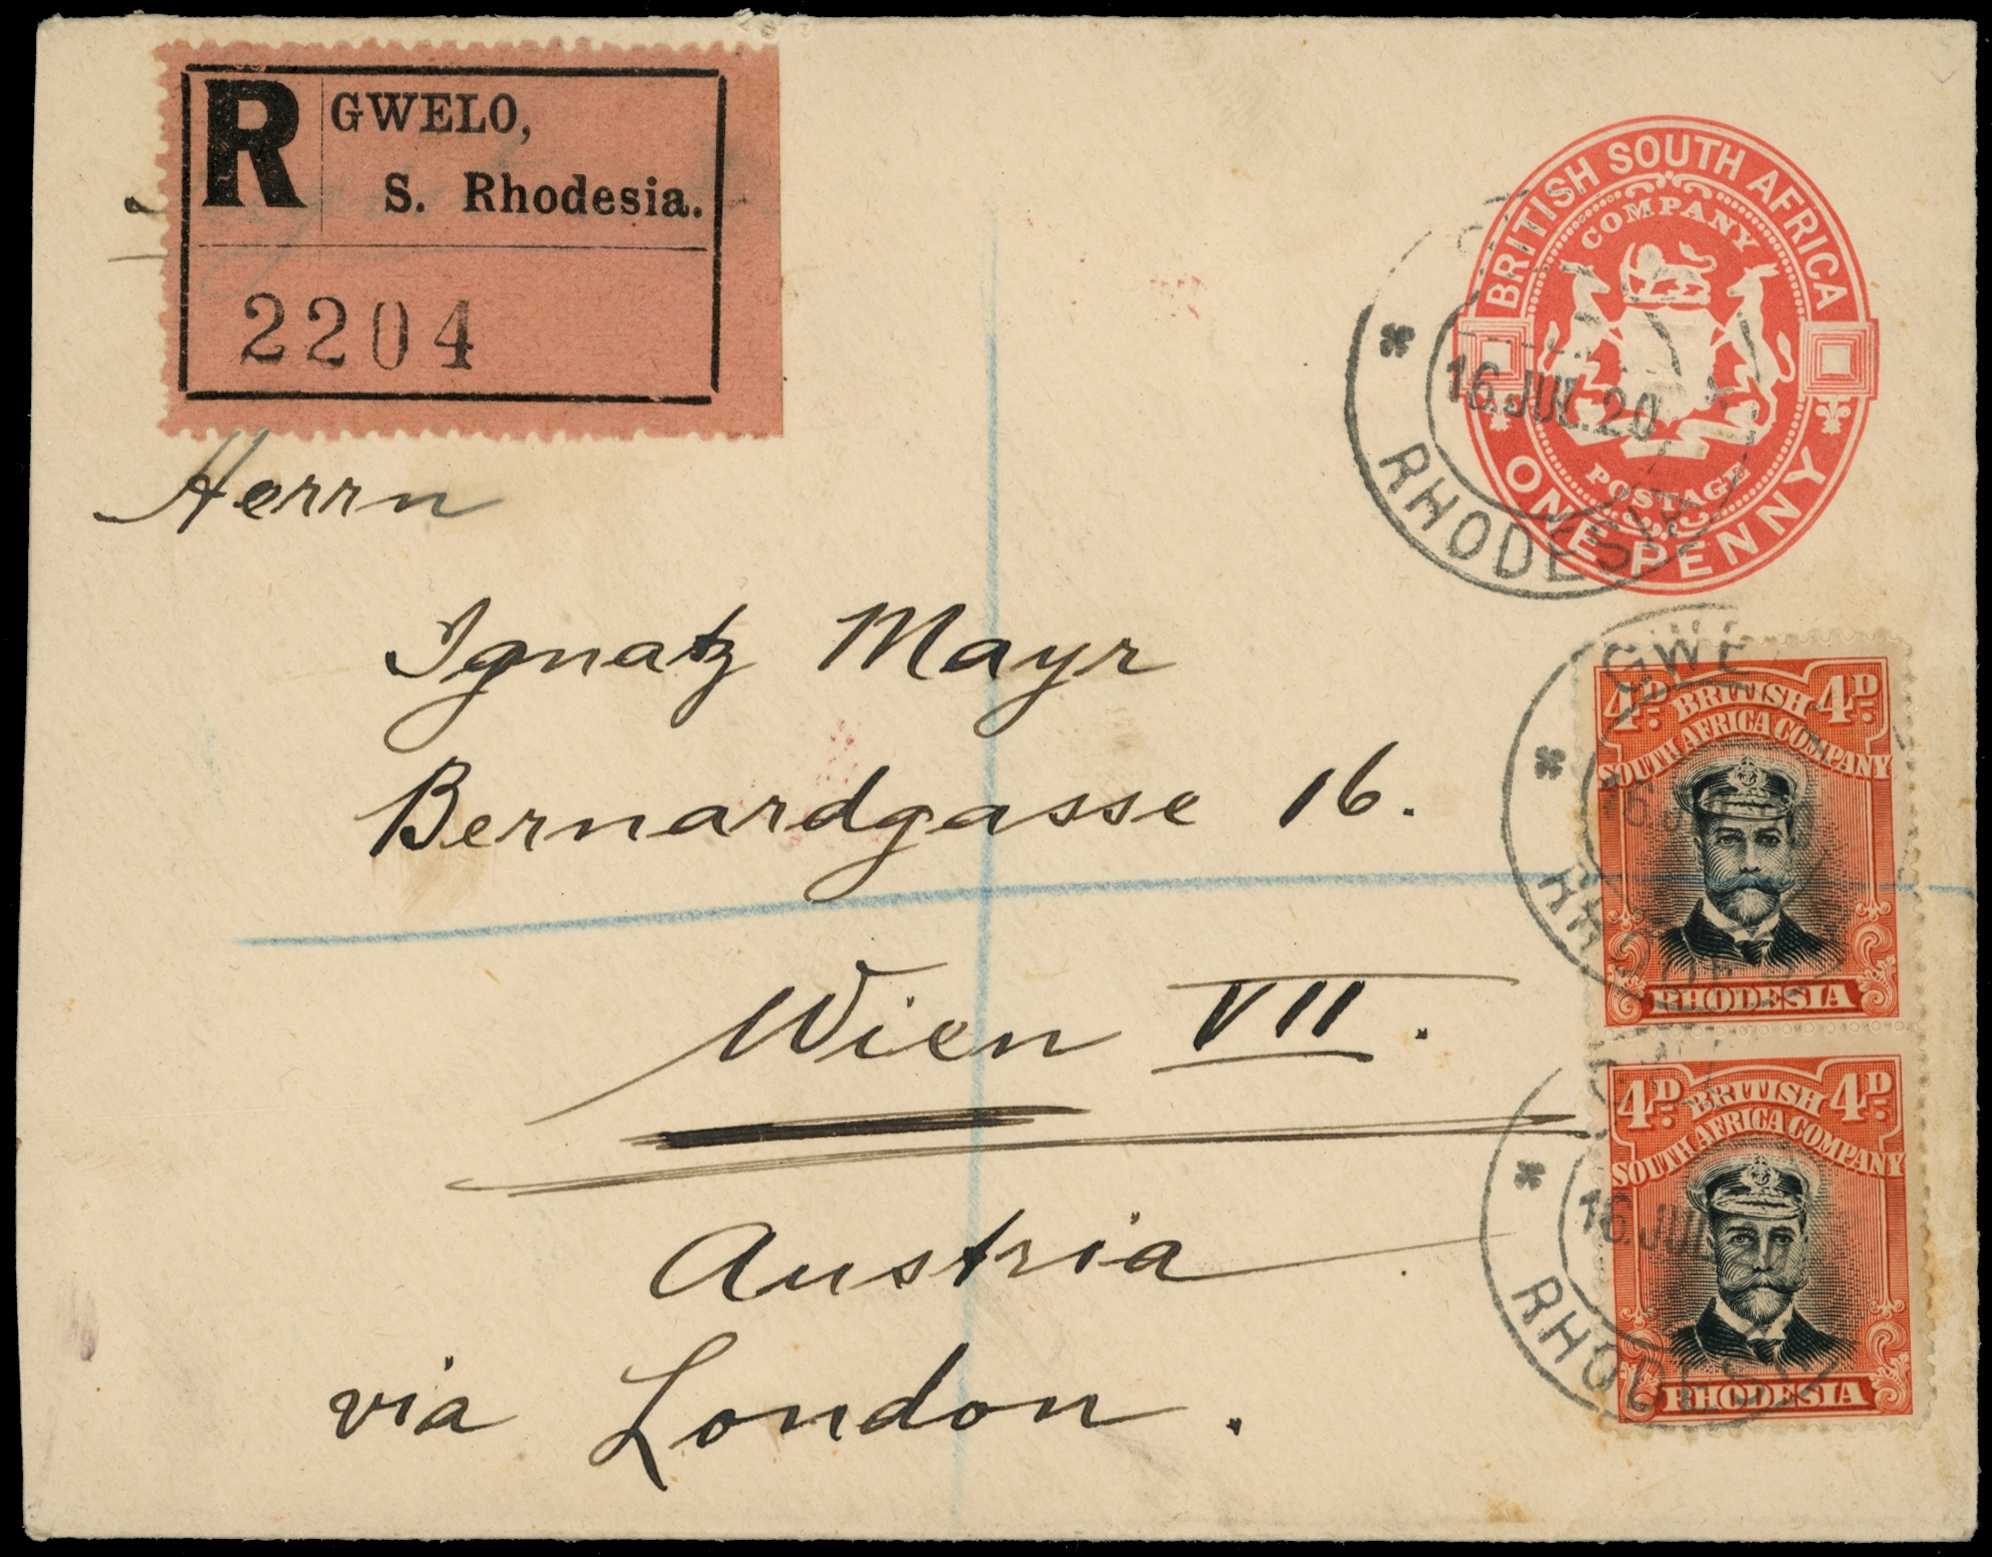 R GWELO,
S. Rhodesia.
2204
BRITISH SOUTH AFRICA
COMPANY
POSTAGE
ONE PENNY
16.JUL.20
RHODESIA
Herrn
Ignatz Mayr
Bernardgasse 16.
Wien VII.
Austria
via London.
GWE
4D. BRITISH 4D.
SOUTH AFRICA COMPANY
16.JUL
RHODESIA
RHODESIA
4D. BRITISH 4D.
SOUTH AFRICA COMPANY
16.JUL
RHODESIA
RHODESIA